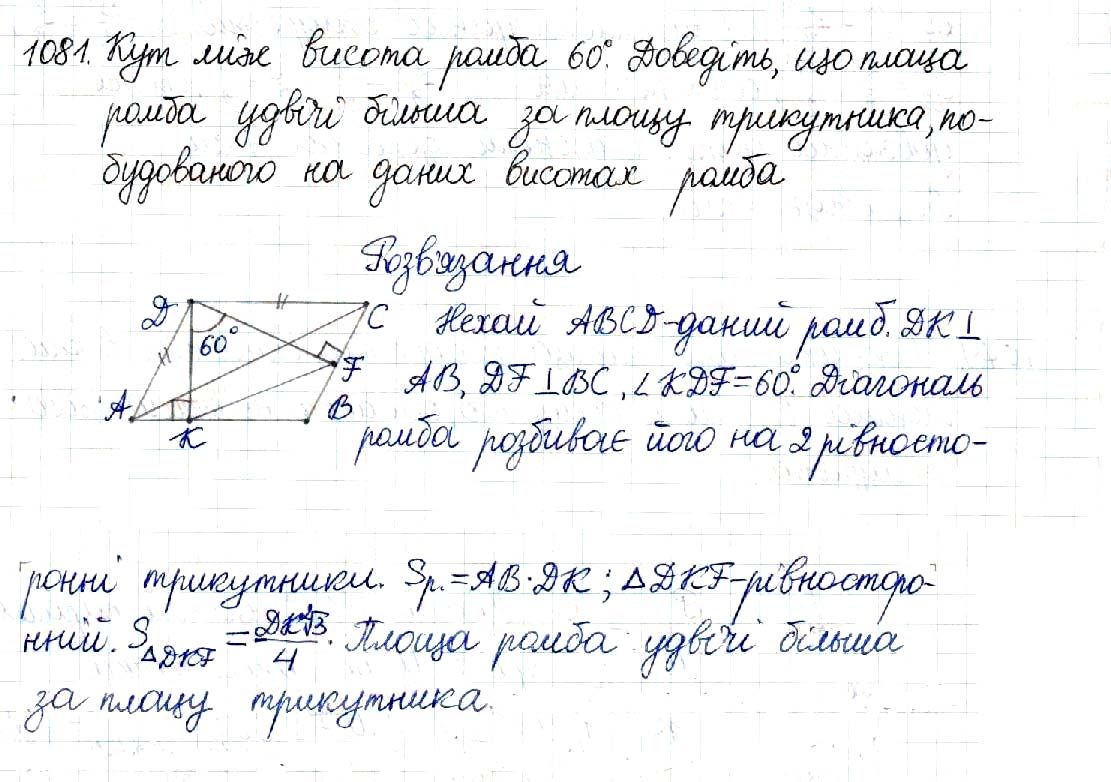 1081. Кут між висота ромба 60°. Доведіть, що площа
ромба удвічі більша за площу трикутника, по-
будованого на даних висотах ромба
Розв'язання
D
C
60°
F
A
B
K
Нехай ABCD-даний ромб. DK⊥
AB, DF⊥BC, ∠KDF=60°. Діагональ
ромба розбиває його на 2 рівносто-
ронні трикутники. Sр.=AB·DK; △DKF-рівносторо-
нній. S△DKF = DK²√3/4. Площа ромба удвічі більша
за площу трикутника.